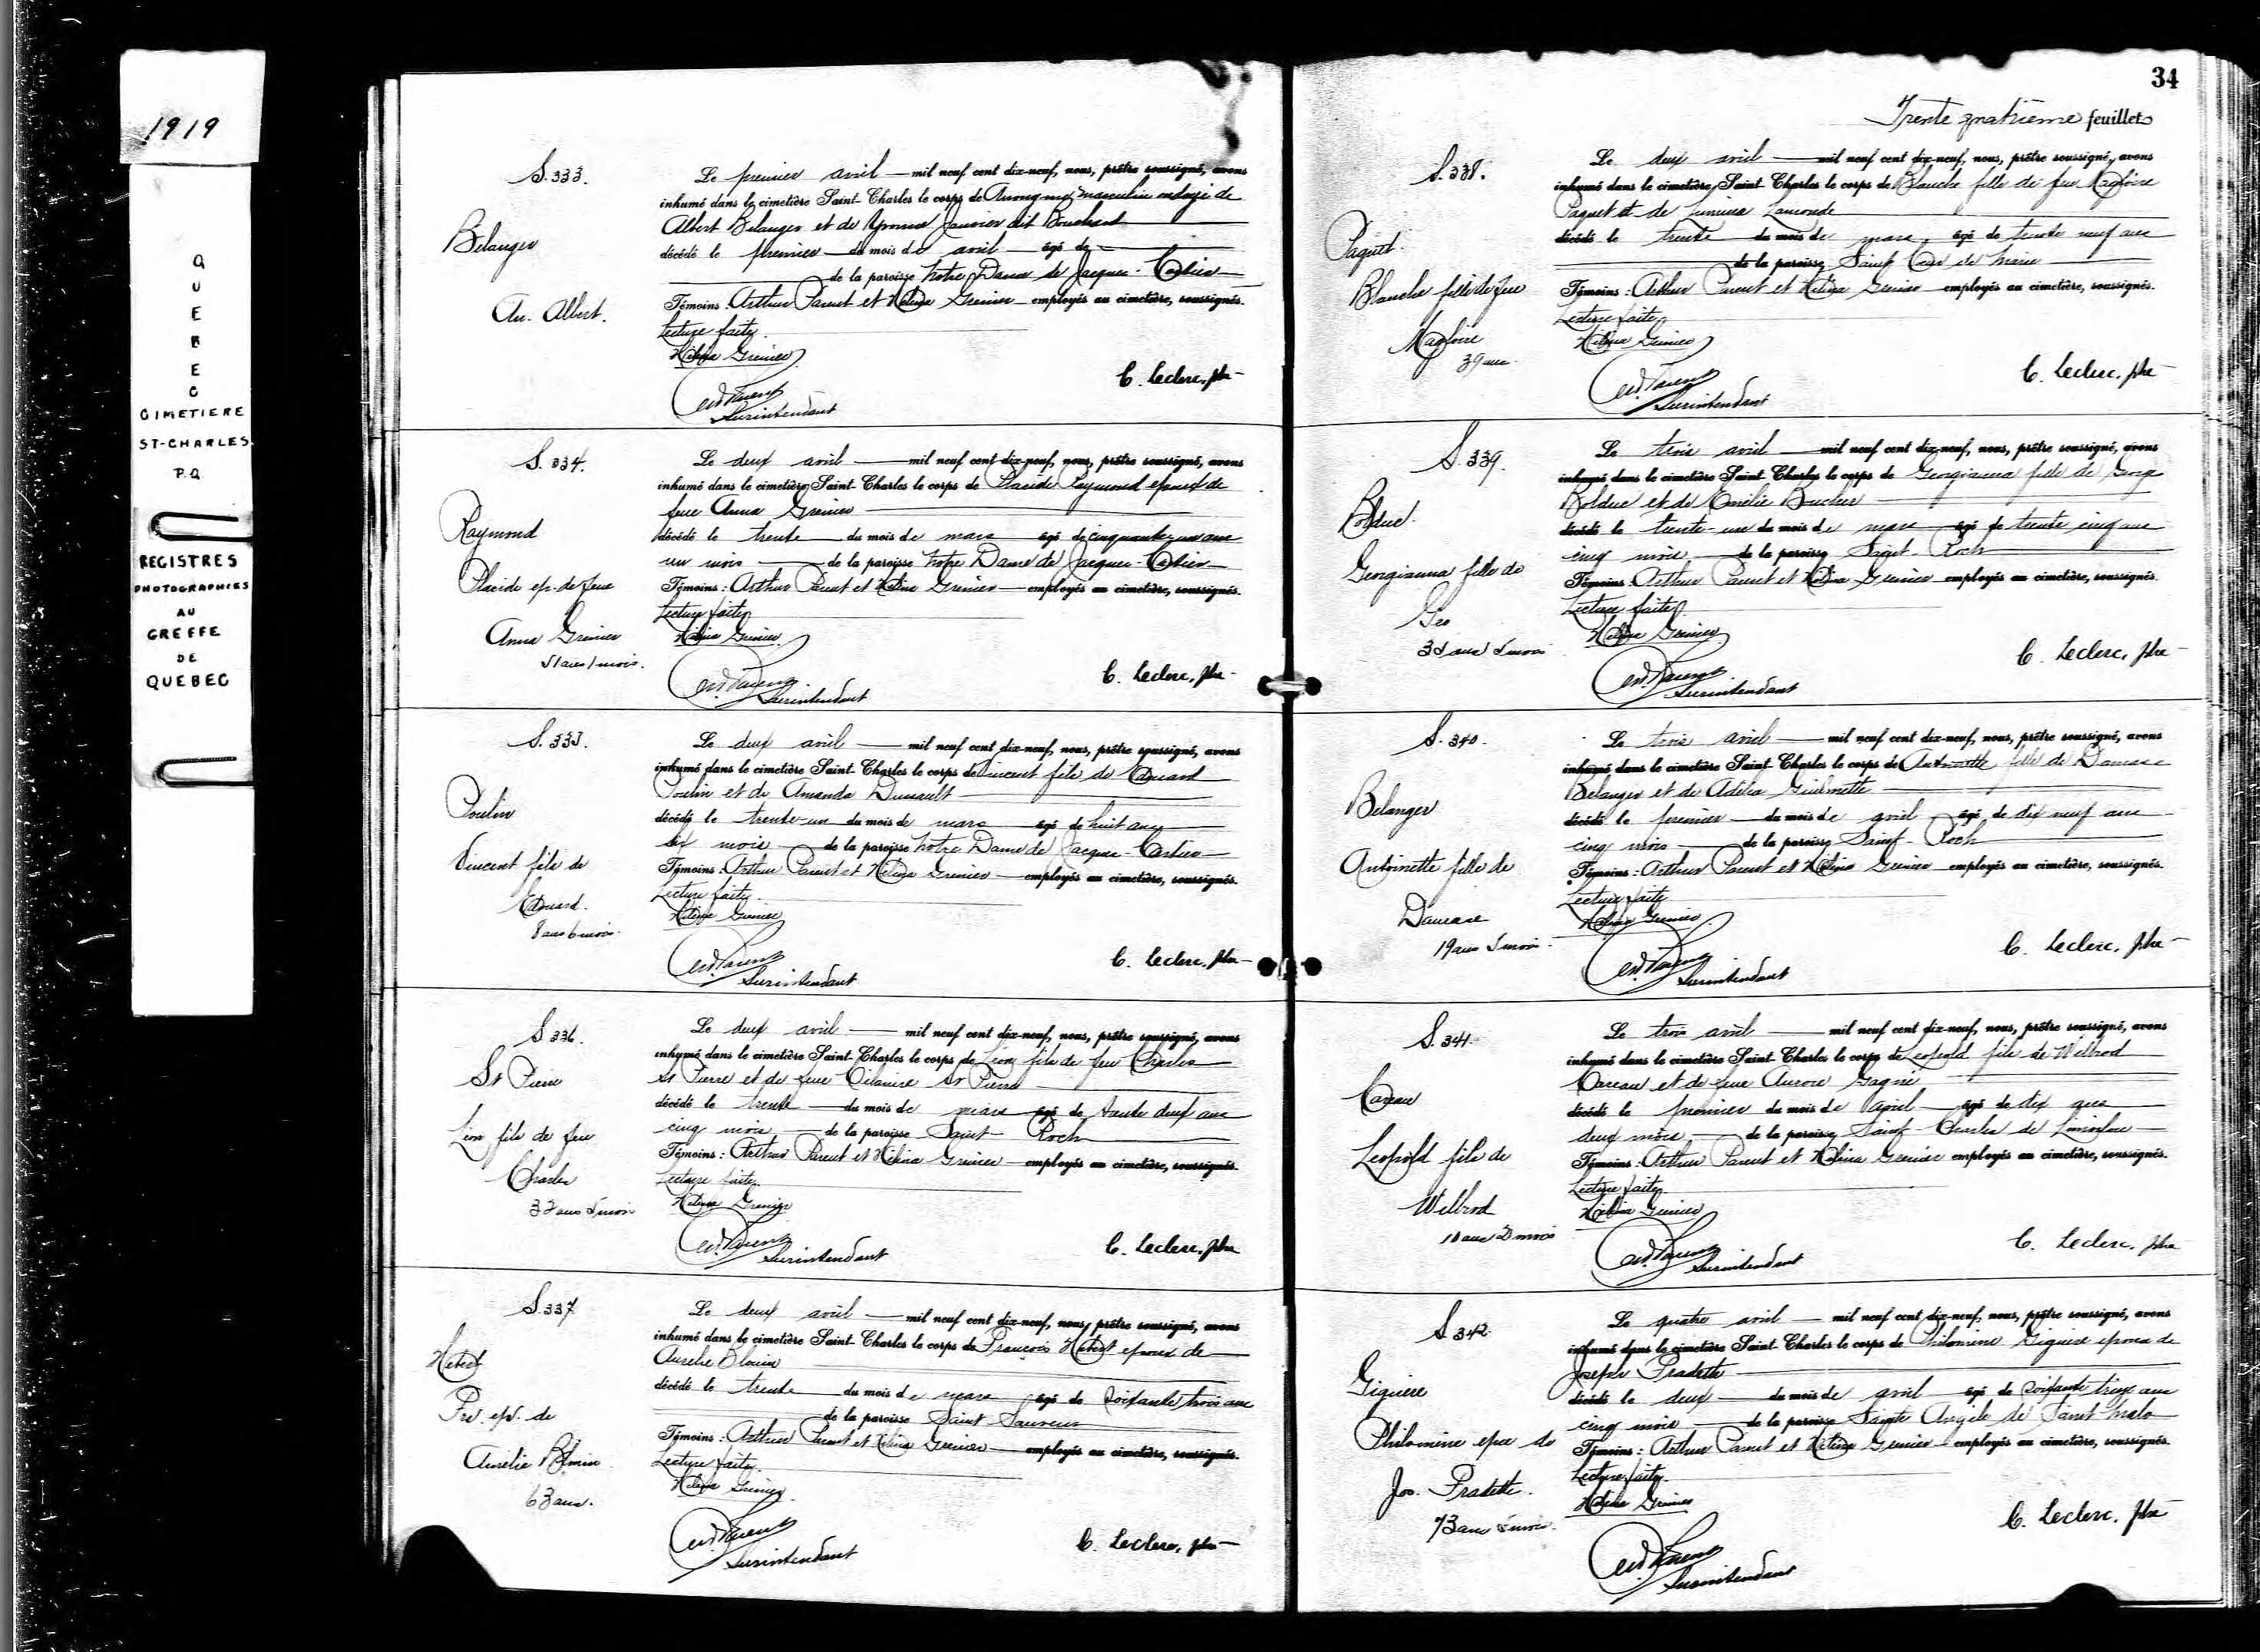 1919
QUEBEC
CIMETIERE
ST-CHARLES
P.Q.
REGISTRES
PHOTOGRAPHIES
AU
GREFFE
DE
QUEBEC
S. 333.
Belanger
An. Albert.
Le premier avril mil neuf cent dix-neuf, nous, prêtre soussigné, avons
inhumé dans le cimetière Saint-Charles le corps de Anonyme masculin ondoyé de
Albert Belanger et de Janvier dit Bouchard
décédé le premier du mois de avril âgé de
de la paroisse Notre Dame de Jacques-Cartier
Témoins: Arthur Parent et Hélina Grenier employés au cimetière, soussignés.
Lecture faite.
Hélina Grenier
Parent
Surintendant
C. Leclerc, ptre
S. 334.
Raymond
Placide ep. de feue
Anna Grenier
51 ans 1 mois.
Le deux avril mil neuf cent dix-neuf, nous, prêtre soussigné, avons
inhumé dans le cimetière Saint-Charles le corps de Placide Raymond epoux de
feue Anna Grenier
décédé le trente du mois de mars âgé de cinquante un ans
un mois de la paroisse Notre Dame de Jacques-Cartier
Témoins: Arthur Parent et Hélina Grenier employés au cimetière, soussignés.
Lecture faite
Hélina Grenier
Parent
Surintendant
C. Leclerc, ptre
S. 335.
Poulin
Vincent fils de
Edouard.
8 ans 6 mois.
Le deux avril mil neuf cent dix-neuf, nous, prêtre soussigné, avons
inhumé dans le cimetière Saint-Charles le corps de Vincent fils de Edouard
Poulin et de Amanda Dussault
décédé le trente-un du mois de mars âgé de huit ans
six mois de la paroisse Notre Dame de Jacques-Cartier
Témoins: Arthur Parent et Hélina Grenier employés au cimetière, soussignés.
Lecture faite.
Hélina Grenier
Parent
Surintendant
C. Leclerc, ptre
S. 336.
St Pierre
Léon fils de feu
Charles
32 ans 5 mois
Le deux avril mil neuf cent dix-neuf, nous, prêtre soussigné, avons
inhumé dans le cimetière Saint-Charles le corps de Léon fils de feu Charles
St Pierre et de feue St Pierre
décédé le trente du mois de mars âgé de trente deux ans
cinq mois de la paroisse Saint Roch
Témoins: Arthur Parent et Hélina Grenier employés au cimetière, soussignés.
Lecture faite.
Hélina Grenier
Parent
Surintendant
C. Leclerc, ptre
S. 337
Hebert
Frs. ep. de
Aurélie Blouin
63 ans.
Le deux avril mil neuf cent dix-neuf, nous, prêtre soussigné, avons
inhumé dans le cimetière Saint-Charles le corps de François Hebert epoux de
Aurelie Blouin
décédé le trente du mois de mars âgé de soixante trois ans
de la paroisse Saint Sauveur
Témoins: Arthur Parent et Hélina Grenier employés au cimetière, soussignés.
Lecture faite.
Hélina Grenier
Parent
Surintendant
C. Leclerc, ptre
34
Trente quatrième feuillet
S. 338.
Paquet.
Blanche fille de feu
Magloire
39 ans
Le deux avril mil neuf cent dix-neuf, nous, prêtre soussigné, avons
inhumé dans le cimetière Saint-Charles le corps de Blanche fille de feu Magloire
Paquet et de Lamonde
décédé le trente du mois de mars âgé de trente neuf ans
de la paroisse Saint Coeur de Marie
Témoins: Arthur Parent et Hélina Grenier employés au cimetière, soussignés.
Lecture faite
Hélina Grenier
Parent
Surintendant
C. Leclerc, ptre
S. 339.
Bolduc.
Georgianna fille de
Geo
35 ans 5 mois
Le trois avril mil neuf cent dix-neuf, nous, prêtre soussigné, avons
inhumé dans le cimetière Saint-Charles le corps de Georgianna fille de George
Bolduc et de Emélie Bucher
décédé le trente-un du mois de mars âgé de trente cinq ans
cinq mois de la paroisse Saint-Roch
Témoins: Arthur Parent et Hélina Grenier employés au cimetière, soussignés.
Lecture faite
Hélina Grenier
Parent
Surintendant
C. Leclerc, ptre
S. 340.
Belanger
Antoinette fille de
Damase
19 ans 5 mois
Le trois avril mil neuf cent dix-neuf, nous, prêtre soussigné, avons
inhumé dans le cimetière Saint-Charles le corps de Antoinette fille de Damase
Belanger et de Adélia Guilmette
décédé le premier du mois de avril âgé de dix neuf ans
cinq mois de la paroisse Saint-Roch
Témoins: Arthur Parent et Hélina Grenier employés au cimetière, soussignés.
Lecture faite
Hélina Grenier
Parent
Surintendant
C. Leclerc, ptre
S. 341.
Careau
Leopold fils de
Wilbrod
10 ans 2 mois
Le trois avril mil neuf cent dix-neuf, nous, prêtre soussigné, avons
inhumé dans le cimetière Saint-Charles le corps de Leopold fils de Wilbrod
Careau et de feue Aurore Gagné
décédé le premier du mois de avril âgé de dix ans
deux mois de la paroisse Saint-Charles de Limoilou
Témoins: Arthur Parent et Hélina Grenier employés au cimetière, soussignés.
Lecture faite
Hélina Grenier
Parent
Surintendant
C. Leclerc, ptre
S. 342
Giguère
Philomène epse de
Jos. Pradette.
73 ans 5 mois.
Le quatre avril mil neuf cent dix-neuf, nous, prêtre soussigné, avons
inhumé dans le cimetière Saint-Charles le corps de Philomène Giguere epouse de
Joseph Pradette
décédé le deux du mois de avril âgé de soixante treize ans
cinq mois de la paroisse Sainte Angèle de Saint Malo
Témoins: Arthur Parent et Hélina Grenier employés au cimetière, soussignés.
Lecture faite.
Hélina Grenier
Parent
Surintendant
C. Leclerc, ptre